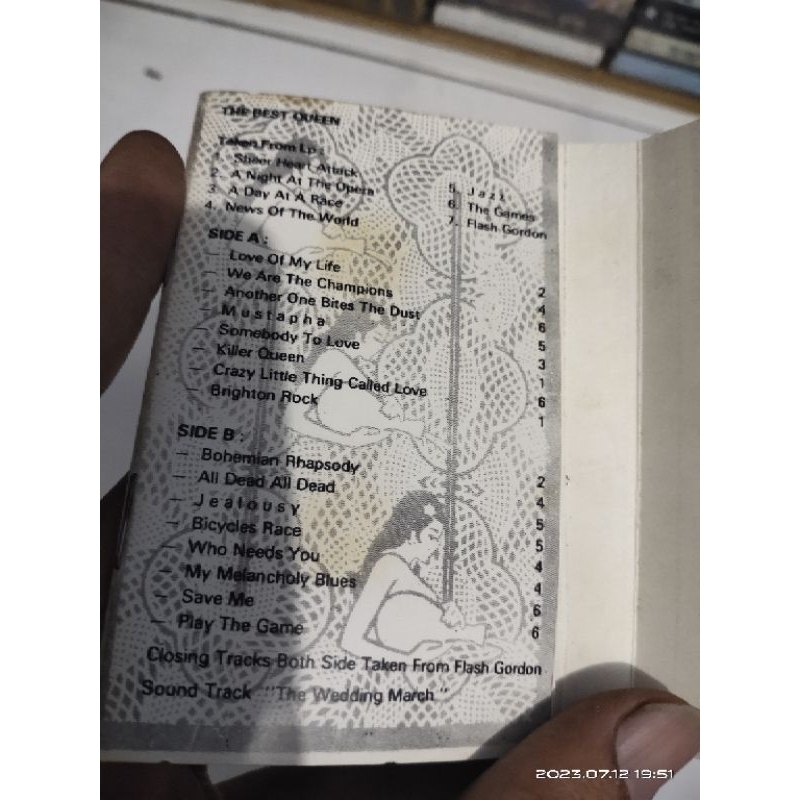 THE BEST QUEEN
Taken From Lp :
1. Sheer Heart Attack
2. A Night At The Opera
3. A Day At A Race
4. News Of The World
5. Jazz
6. The Games
7. Flash Gordon
SIDE A :
— Love Of My Life 2
— We Are The Champions 4
— Another One Bites The Dust 6
— Mustapha 5
— Somebody To Love 3
— Killer Queen 1
— Crazy Little Thing Called Love 6
— Brighton Rock 1
SIDE B :
— Bohemian Rhapsody 2
— All Dead All Dead 4
— Jealousy 5
— Bicycles Race 5
— Who Needs You 4
— My Melancholy Blues 4
— Save Me 6
— Play The Game 6
Closing Tracks Both Side Taken From Flash Gordon
Sound Track "The Wedding March"
2023.07.12 19:51